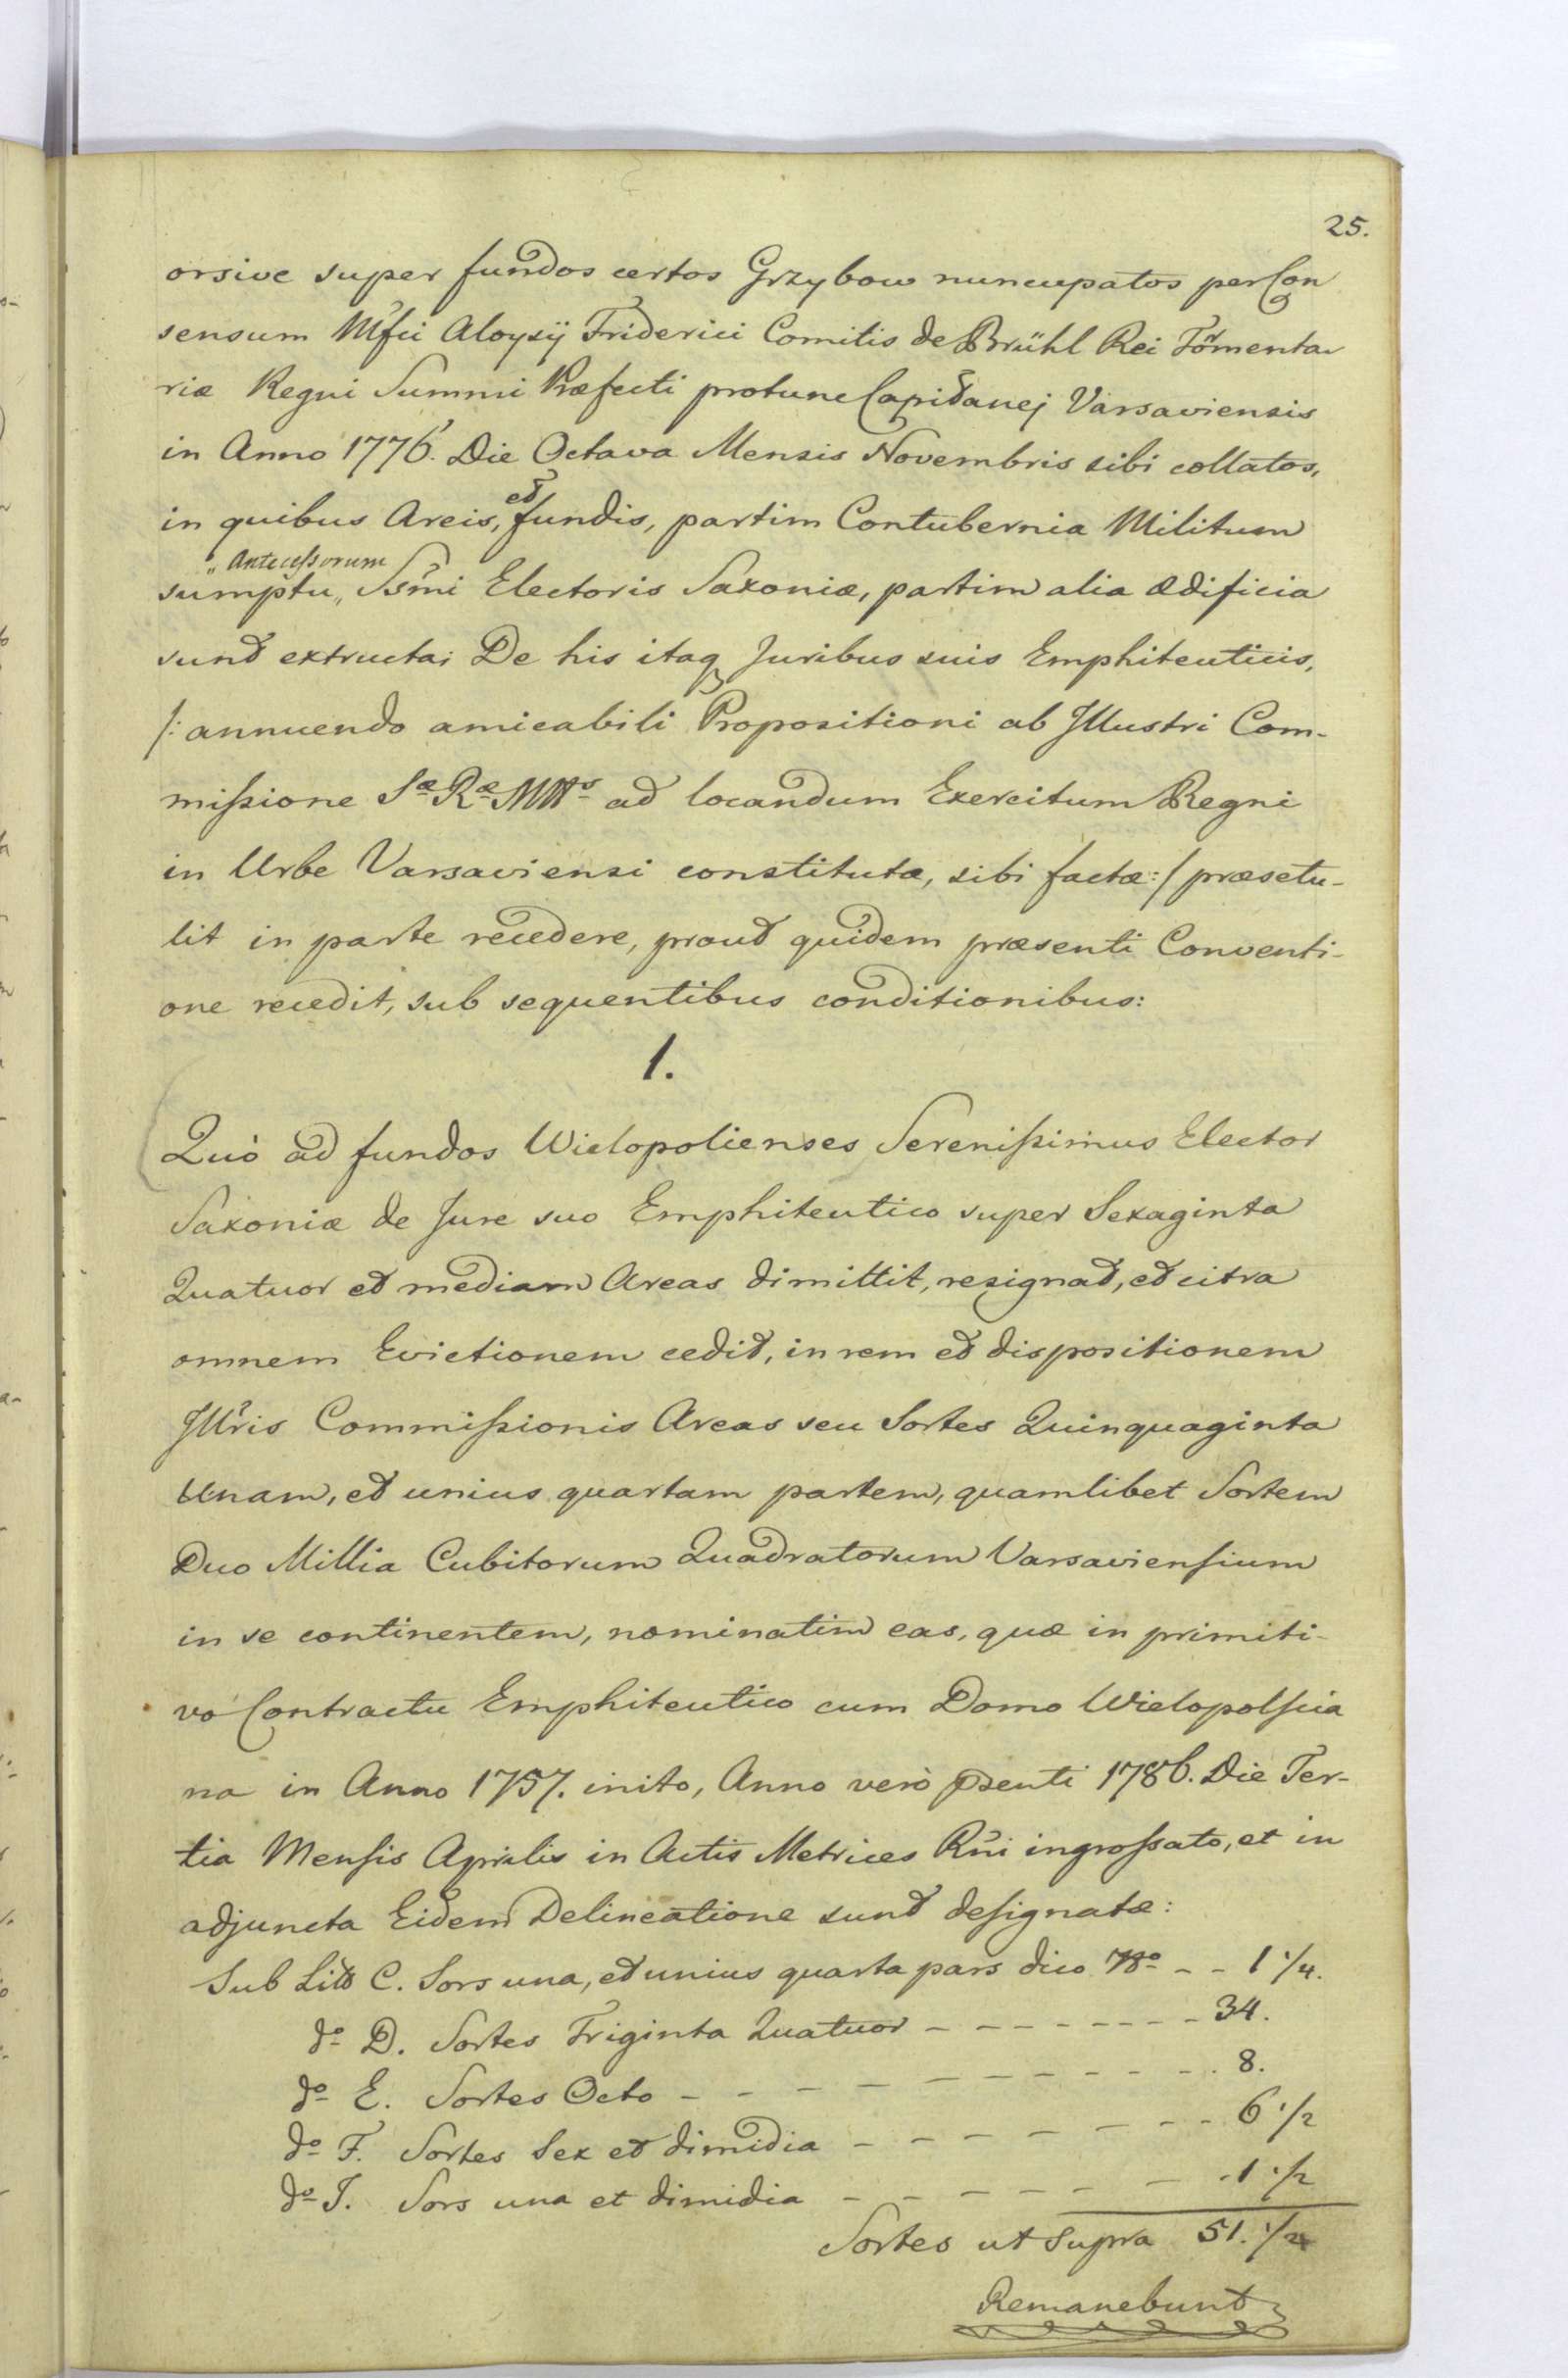 25.
orsive super fundos certos Grzybow nuncupatos per Con
sensum Mfci Aloysij Friderici Comitis de Brühl Rei Tormenta
riæ Regni Summi Præfecti protunc Capitanej Varsaviensis
in Anno 1776. Die Octava Mensis Novembris sibi collatos,
in quibus Areis, et fundis, partim Contubernia Militum
sumptu „ Antecessorum „ Ssmi Electoris Saxoniæ, partim alia ædificia
sunt extructa; De his itaq Juribus suis Emphiteuticis,
/: annuendo amicabili Propositioni ab Illustri Com-
missione Sæ Ræ Mttis ad locandum Exercitum Regni
in Urbe Varsaviensi constitutæ, sibi factæ :/ præsetu-
lit in parte recedere, prout quidem præsenti Conventi-
one recedit, sub sequentibus conditionibus:
1.
Quò ad fundos Wielopolienses Serenissimus Elector
Saxoniæ de Jure suo Emphiteutico super Sexaginta
Quatuor et mediam Areas dimittit, resignat, et citra
omnem Evictionem cedit, in rem et dispositionem
Illris Commissionis Areas seu Sortes Quinquaginta
Unam, et unius quartam partem, quamlibet Sortem
Duo Millia Cubitorum Quadratorum Varsaviensium
in se continentem, nominatim eas, quæ in primiti-
vo Contractu Emphiteutico cum Domo Wielopolscia
na in Anno 1757. inito, Anno verò psenti 1786. Die Ter-
tia Mensis Aprilis in Actis Metrices Rni ingrossato, et in
adjuncta Eidem Delineatione sunt designatæ:
Sub Litt C. Sors una, et unius quarta pars dico No - - 1 1/4.
do D. Sortes Triginta Quatuor - - - - - - - - 34.
do E. Sortes Octo - - - - - - - - - - 8.
do F. Sortes Sex et dimidia - - - - - - - 6 1/2
do I. Sors una et dimidia - - - - - - - 1 1/2
Sortes ut supra 51. 1/4
Remanebunt